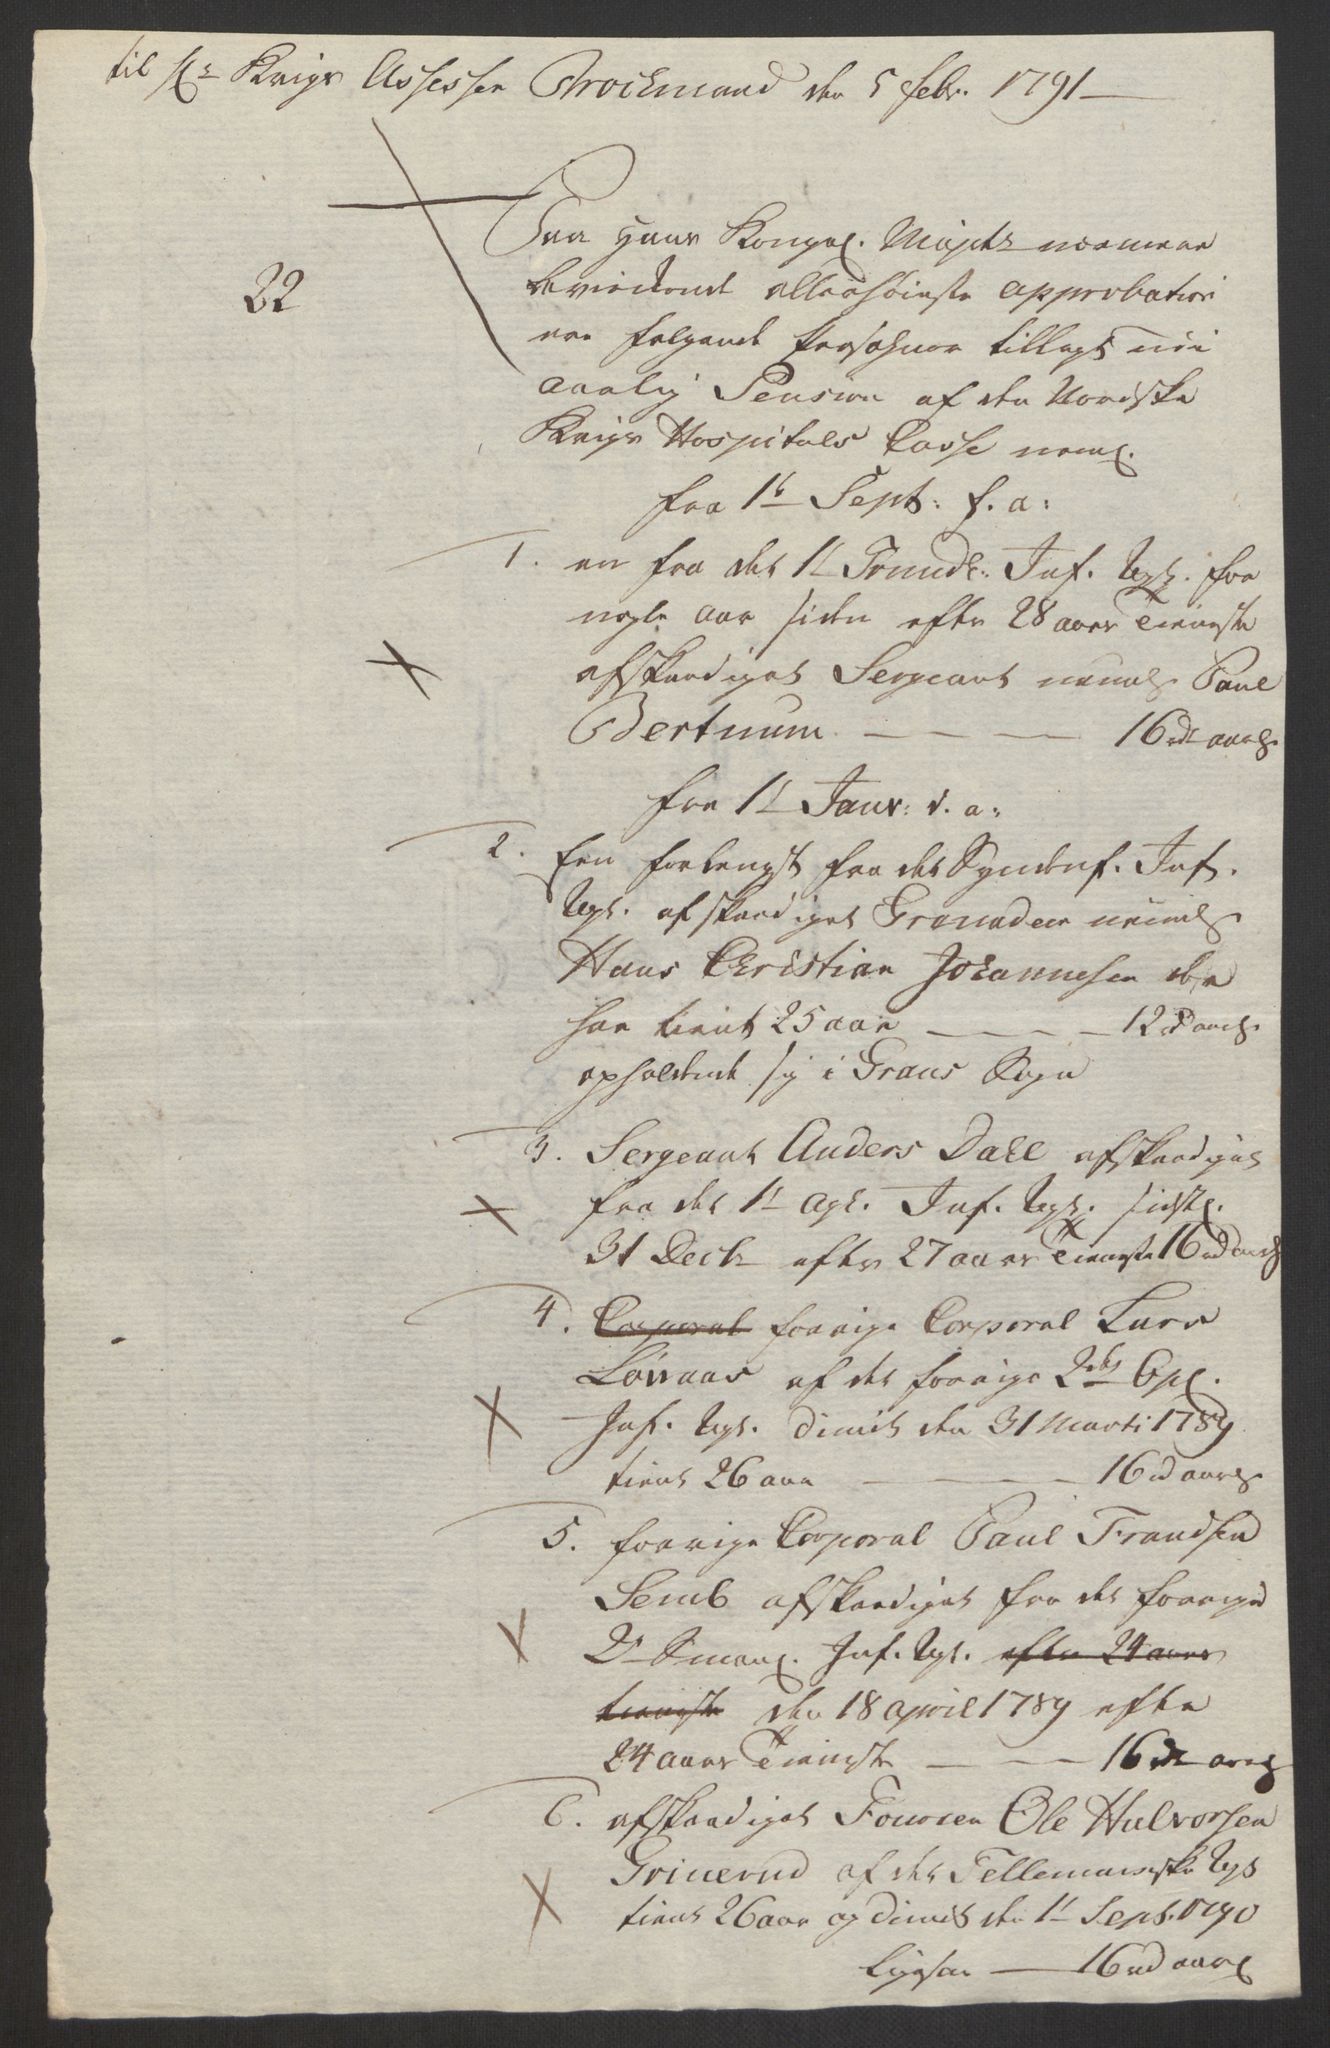 til Hr Krigs Assessor Brockmand den 5 Febr. 1791
22
Paa Hans Kongel. Majsts nærmere
bevirkende allerhøieste approbation
ere følgende Persohner tillagt
aarlig Pension af den Nordske
Krigs Hospitals Casse neml.
fra 1te Sept: f. a:
1. en fra det 1te Trondh: Inf. Regt. for
nogle aar siden efter 28 aars Tieneste
afskediget Sergeant navnl. Paul
Bertnum — — — 16 rd aarl.
fra 1te Janr: d. a:
2. Een forlengst fra det Syndenf. Inf.
Regt. afskediget Granadeer navnl.
Hans Christian Johannesen der
har tient 25 aar — — — 12 rd aarl.
opholdende sig i Grans Sogn
3. Sergeant Anders Dahl afskediget
fra det 1te Agh. Inf. Regt. sidstl.
31 Decbr efter 27 aars Tieneste 16 rd aarl
4. Corporal forrige Corporal Lars
Løvaas af det forrige 2det Opl.
Inf. Regt. dimit. den 31 Marti 1789
tient 26 aar — — — 16 rd aarl.
5. forrige Corporal Paul Frandsen
Semb afskediget fra det forrige
2det Smaal. Inf. Regt. efter 24 aars
tieneste den 18 april 1789 efter
24 aars Tieneste — — — 16 rd aarl
6. afskediget Fourier Ole Halvorsen
Grinerud af det Tellemarkske Regt
tient 26 aar og dimit. den 1te Sept. 1790
16 rd aarl